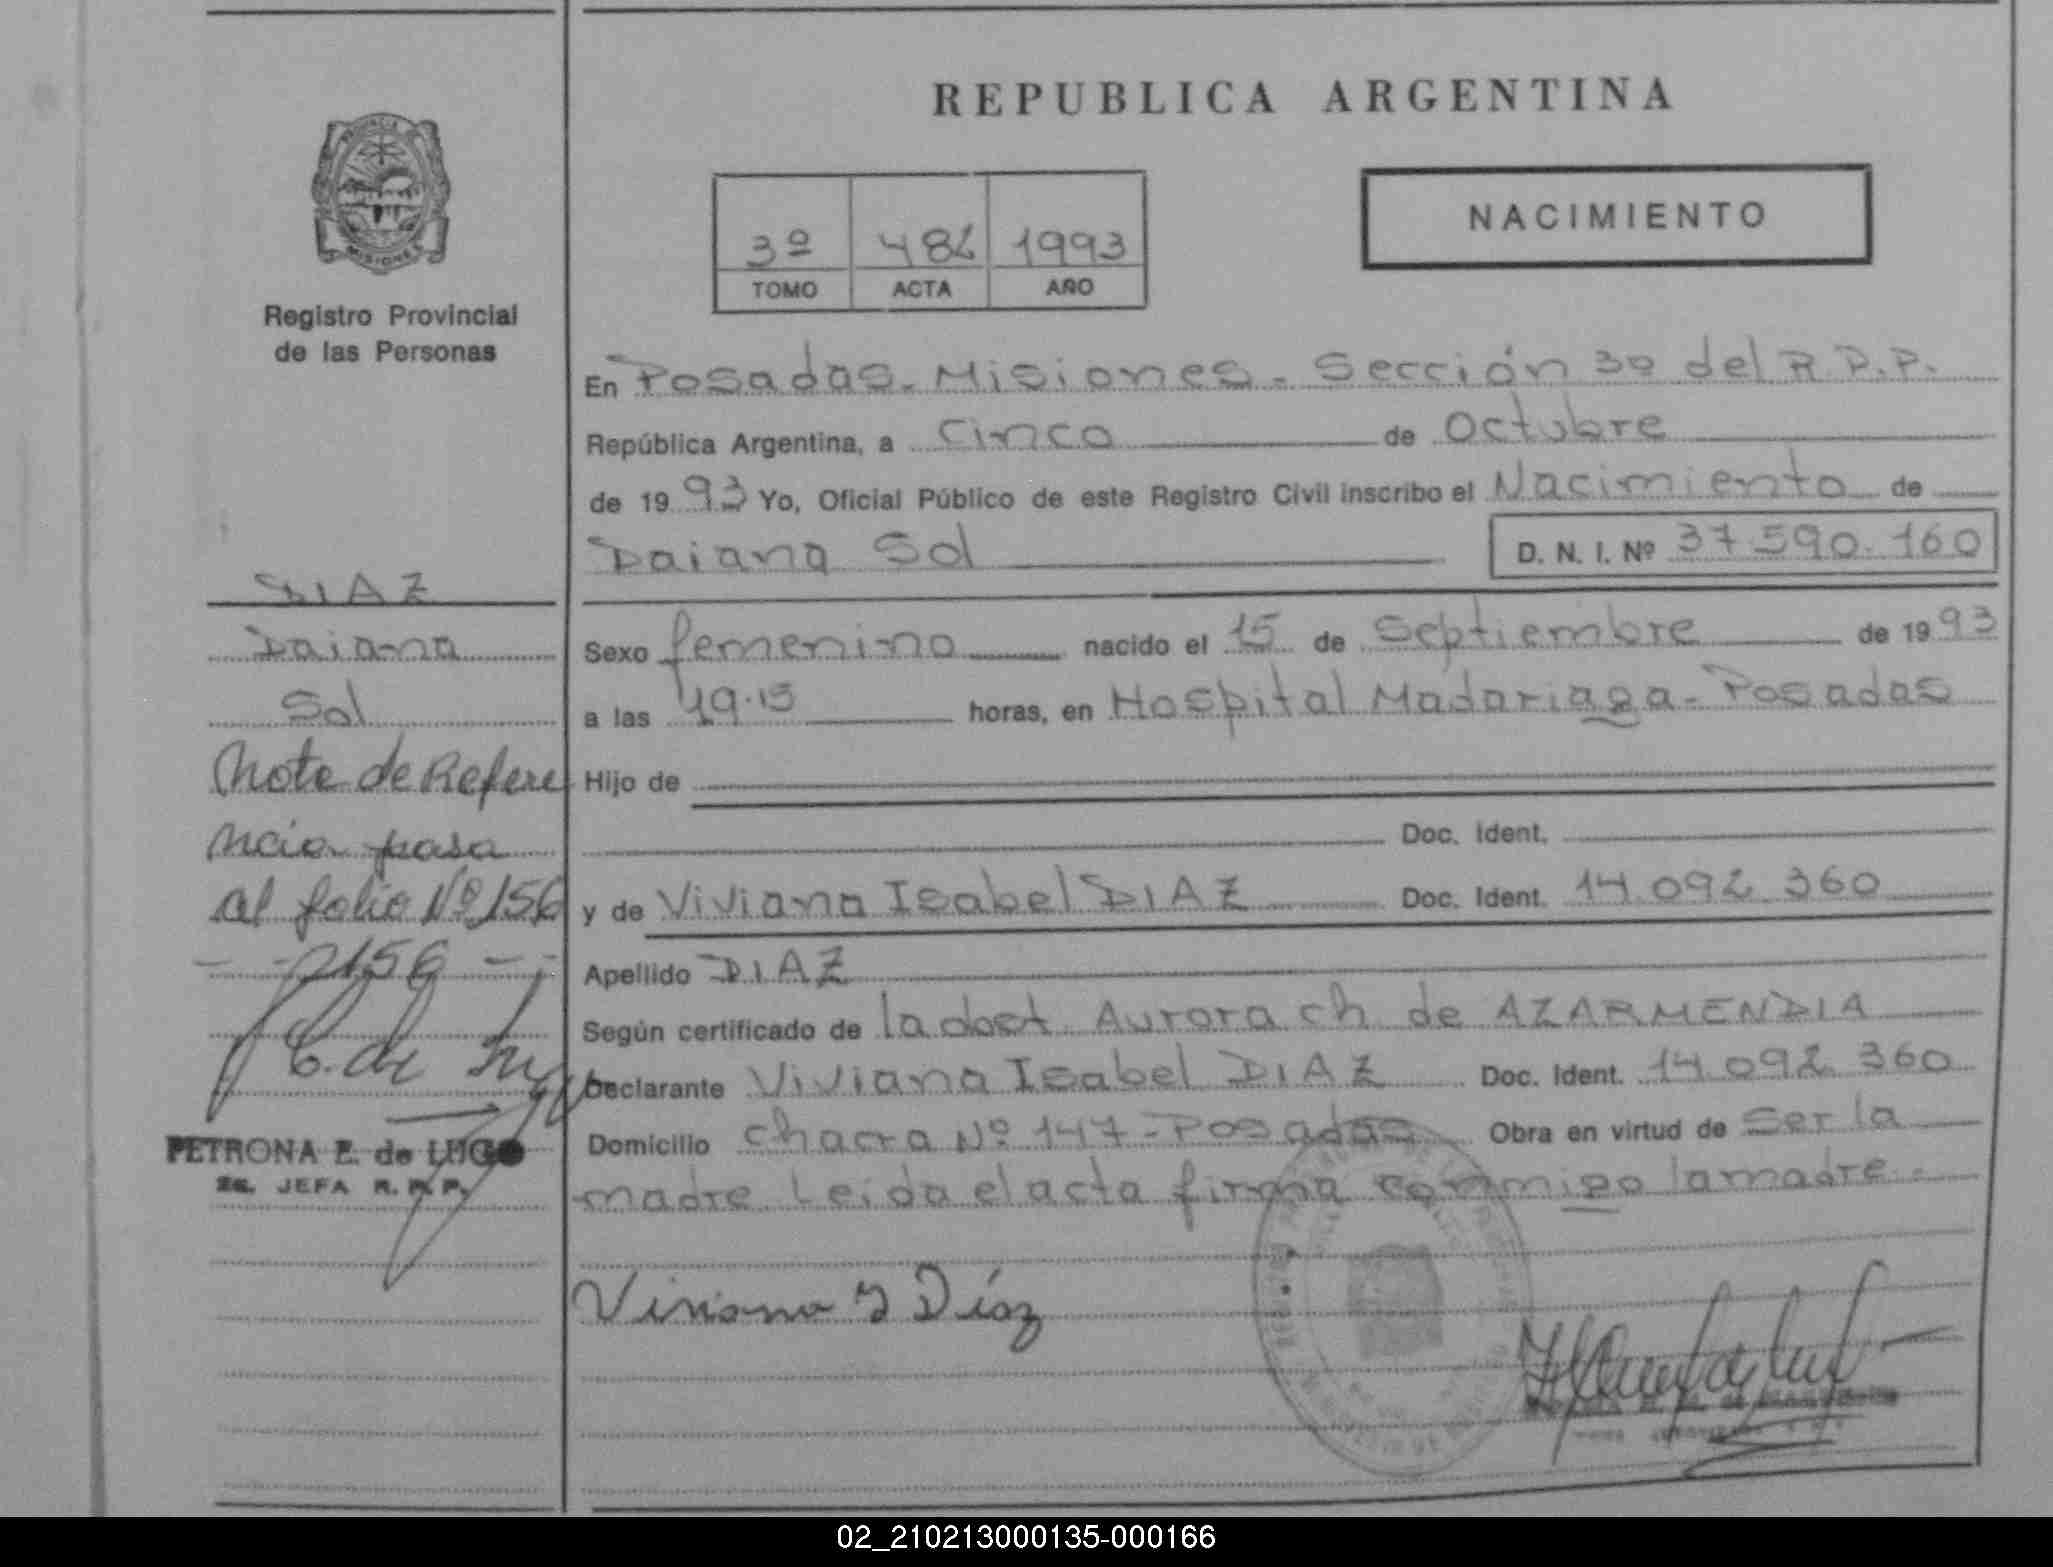 REPUBLICA ARGENTINA
PROVINCIA
MISIONES
Registro Provincial
de las Personas
3º 1993
TOMO ACTA AÑO
NACIMIENTO
En Posadas - Misiones - Sección 3º del R.P.P.
República Argentina, a cinco de Octubre
de 1993 Yo, Oficial Público de este Registro Civil inscribo el Nacimiento de
Daiana Sol D. N. I. Nº 37.590.160
DIAZ
Daiana
Sol
Sexo femenino nacido el 15 de Septiembre de 1993
a las 19.15 horas, en Hospital Madariaga - Posadas
Hijo de
Doc. Ident.
y de Viviana Isabel DIAZ Doc. Ident. 14.092.360
Apellido DIAZ
Según certificado de la obst Aurora ch. de AZARMENDIA
Declarante Viviana Isabel DIAZ Doc. Ident. 14.092.360
Domicilio chacra Nº 147 - Posadas Obra en virtud de ser la
madre Leida el acta firma conmigo la madre.
Nota de Refere
ncia pasa
al folio Nº 156
156
PETRONA E. de LUGO
JEFA R. P. P.
Viviana I Díaz
02_210213000135-000166